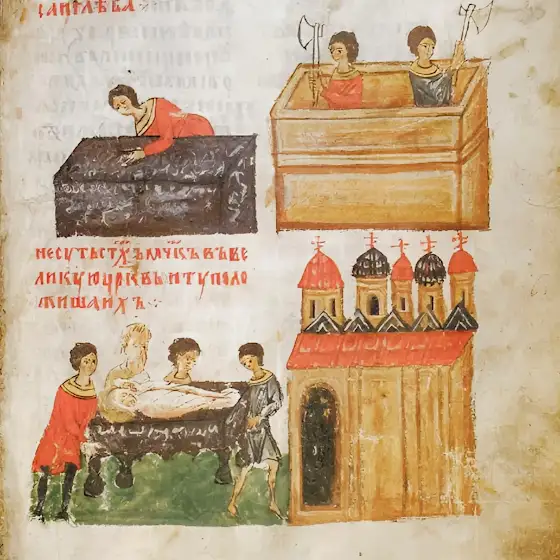 САИГЛѢБА
НЕСУТЬСТ҃ХЪМЧ҃КЪВЪВЕ
ЛИКУЮЦР҃КВЬИТУПОЛО
ЖИШАИХЪ